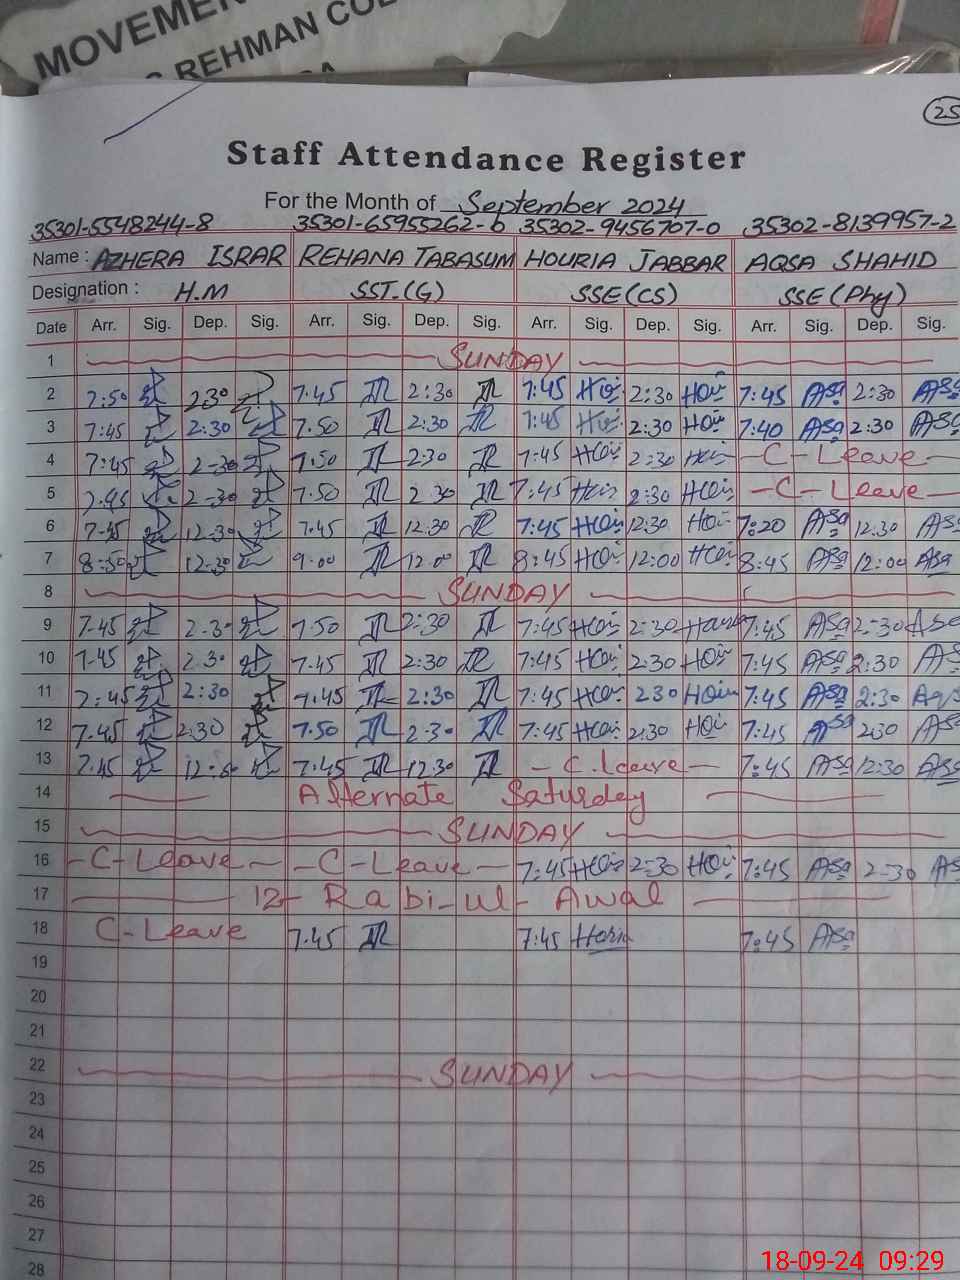 MOVEMEN
REHMAN COL
25
Staff Attendance Register
For the Month of September 2024
35301-5548244-8 35301-65955262-6 35302-9456707-0 35302-8139957-2
Name : AZHERA ISRAR REHANA TABASUM HOURIA JABBAR AQSA SHAHID
Designation : H.M SST.(G) SSE(CS) SSE(Phy)
Date Arr. Sig. Dep. Sig. Arr. Sig. Dep. Sig. Arr. Sig. Dep. Sig. Arr. Sig. Dep. Sig.
1 SUNDAY
2 7:50 2:30 7.45 2:30 7:45 Hoi 2:30 Hoi 7:45 Asa 2:30 Asa
3 7:45 2:30 7.50 2:30 7:45 Hoi 2:30 Hoi 7:40 Asa 2:30 Asa
4 7:45 2-30 7.50 2:30 7:45 Hoi 2:30 Hoi -C-Leave-
5 7.45 2-30 7.50 2.30 7:45 Hoi 2:30 Hoi -C-Leave-
6 7-45 12-30 7.45 12.30 7:45 Hoi 12:30 Hoi 7:20 Asa 12:30 As
7 8:50 12-30 9.00 12.00 8:45 Hoi 12:00 Hoi 8:45 Asa 12:00 Asa
8 SUNDAY
9 7-45 2-30 7.50 2:30 7:45 Hoi 2:30 7:45 Asa 2:30 Asa
10 7-45 2.30 7.45 2:30 7:45 Hoi 2:30 Hoi 7:45 Asa 2:30 As
11 7:45 2:30 7.45 2:30 7:45 Hoi 230 Hoi 7:45 Asa 2:30 Aqs
12 7.45 2:30 7.50 2.30 7:45 Hoi 2:30 Hoi 7:45 Asa 2:30 As
13 7.45 7.45 12.30 -C.Leave- 7:45 Asa 12:30 Asa
14 Alternate Saturday
15 SUNDAY
16 -C-Leave- -C-Leave- 7:45 Hoi 2:30 Hoi 7:45 Asa 2:30 As
17 12-Rabi-ul-Awal
18 C-Leave 7.45 7:45 Horia 7:45 Asa
19
20
21
22 SUNDAY
23
24
25
26
27
28
18-09-24 09:29